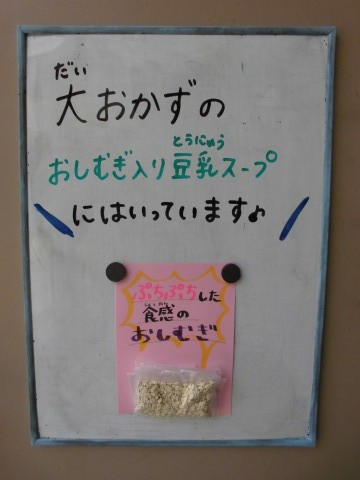 だい
大おかずの
とうにゅう
おしむぎ入り豆乳スープ
にはいっています♪
ぷちぷちした
しょっかん
食感の
おしむぎ